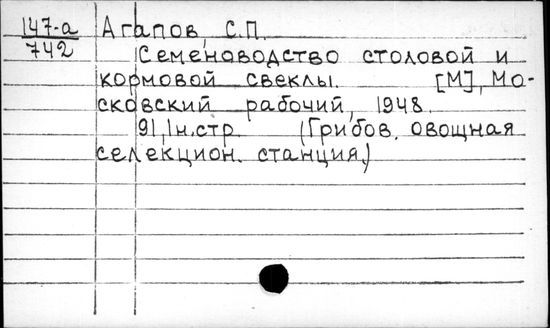 147-а Агапов, С.П.
742 Семеноводство столовой и
кормовой свеклы. [М], Мо-
сковский рабочий, 1948.
91, 1н.стр. (Грибов. овощная
селекцион. станция.)